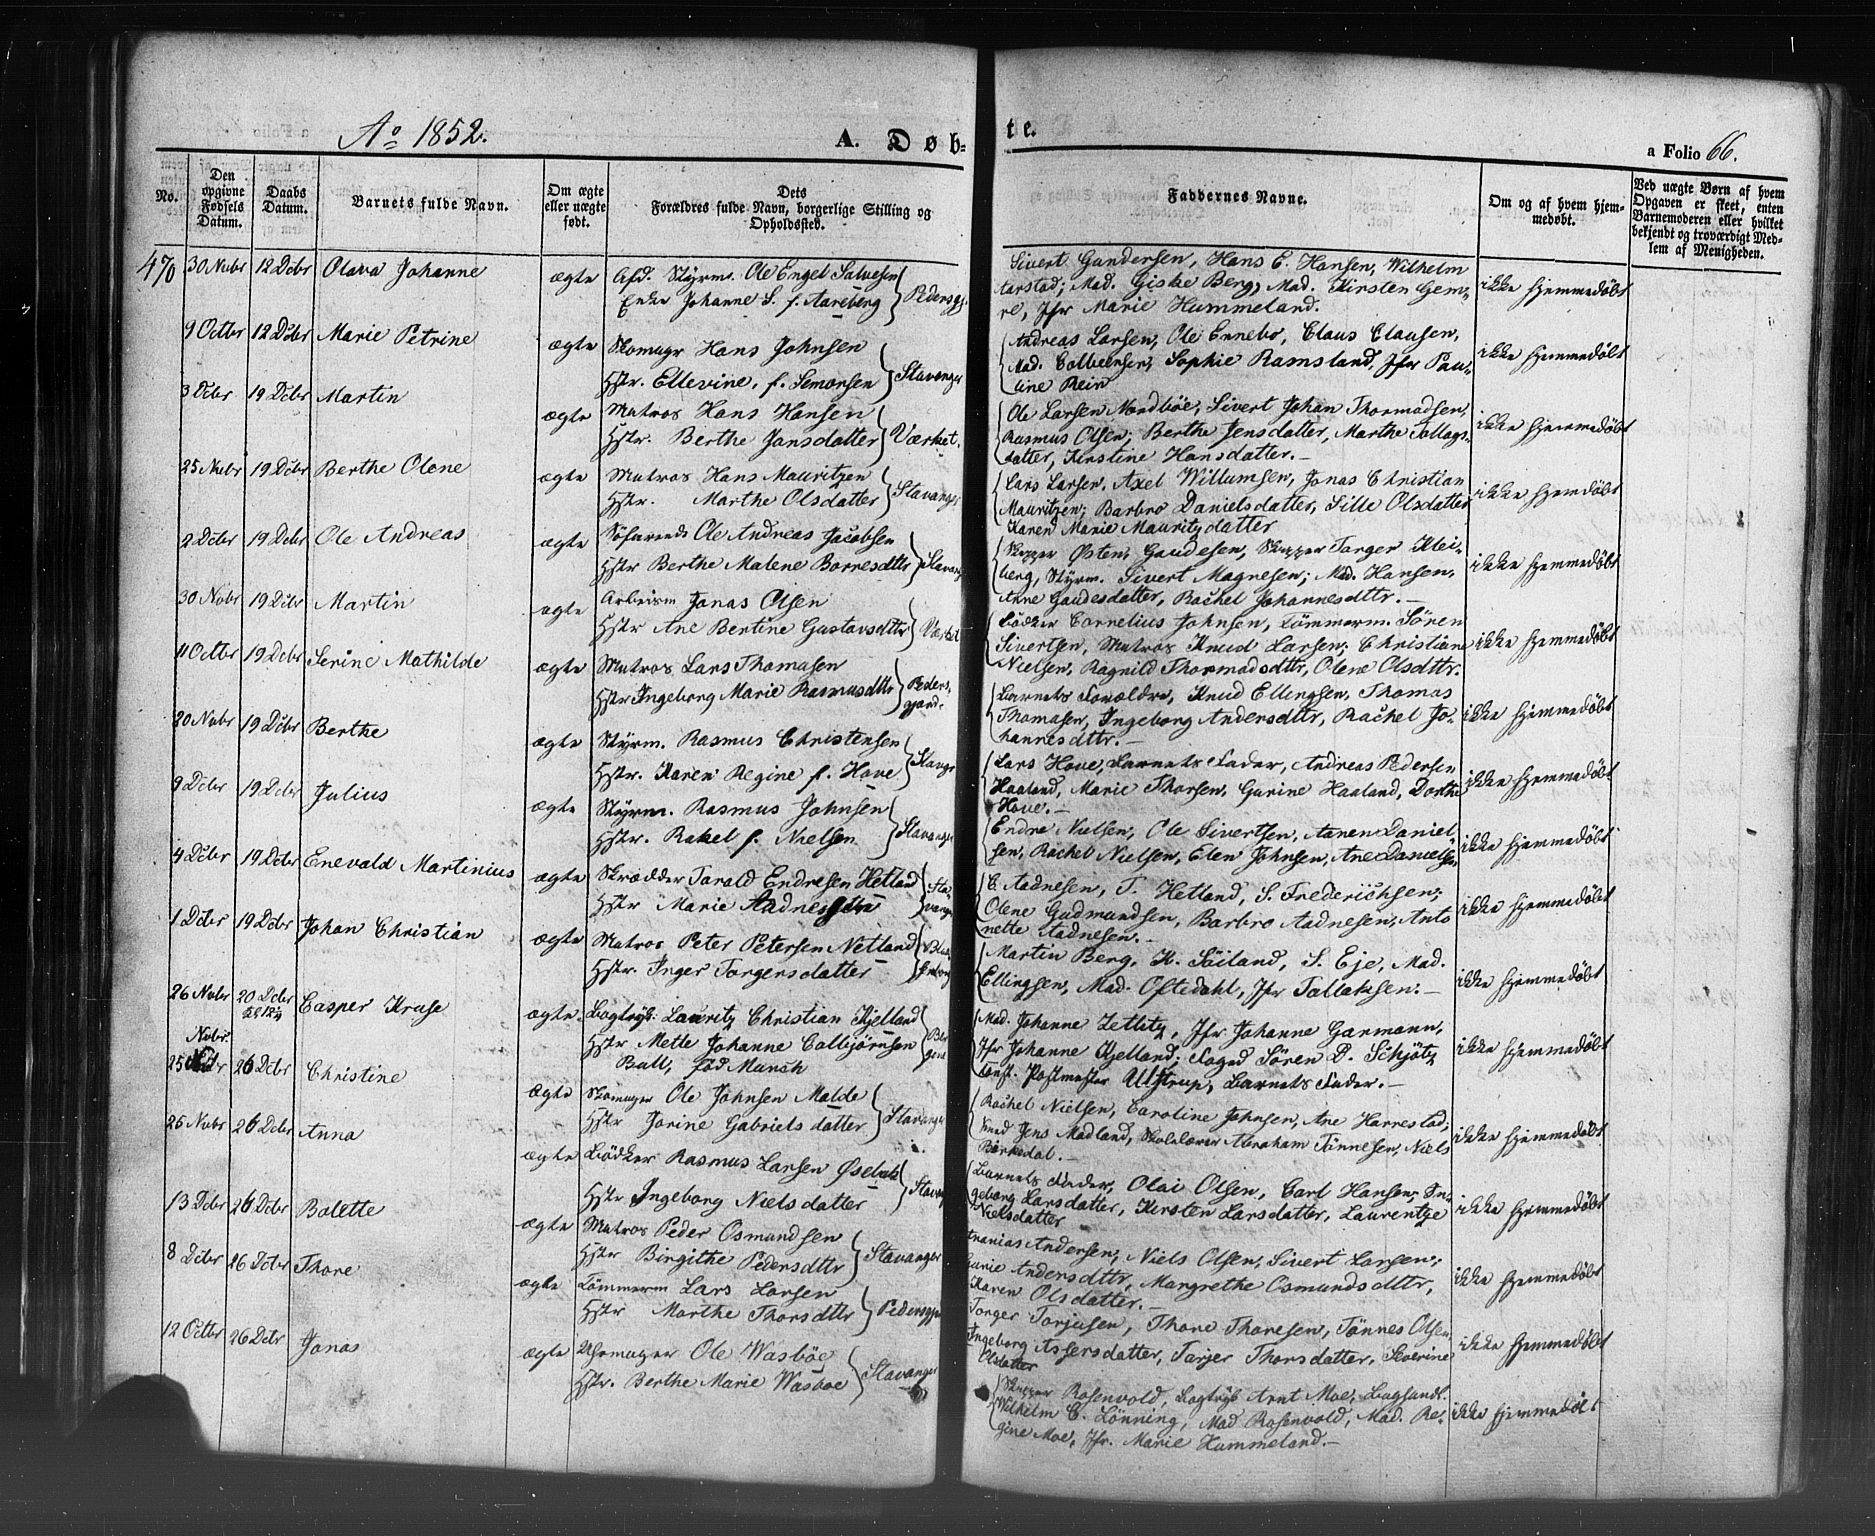 Ao 1852.
A. Døb-
te.
a Folio 66.
No.
Den
opgivne
Fødsels
Datum.
Daabs
Datum.
Barnets fulde Navn.
Om ægte
eller uægte
født.
Dets
Forældres fulde Navn, borgerlige Stilling og
Opholdssted.
Faddernes Navne.
Om og af hvem hjem-
medøbt.
Ved uægte Børn af hvem
Opgaven er skeet, enten
Barnemoderen eller hvilket
bekjendt og troværdigt Med-
lem af Menigheden.
470 30 Nvbr 12 Dcbr Olava Johanne ægte Afd. Styrm. Ole Engel Salvesen
Enke Johanne S. f. Aareberg Pedersgj.
Sivert Gundersen, Hans E. Hansen, Wilhelm
Tarstad; Mad. Giske Berg, Mad. Kirsten Gem-
re, Jfr Marie Hummeland.
ikke hjemmedøbt
9 Octbr 12 Dcbr Marie Petrine ægte Skomagr Hans Johnsen
Hstr. Ellevine, f. Semonsen Stavanger
Andreas Larsen, Ole Ennebo, Claus Clausen,
Mad. Colbeensen, Sophie Ramsland, Jfr Pau-
line Rein
ikke hjemmedøbt
3 Dcbr 19 Dcbr Martin ægte Matros Hans Hansen
Hstr. Berthe Jansdatter Værket.
Ole Larsen Nordbøe, Sivert Johan Thormodsen,
Rasmus Olsen; Berthe Jensdatter, Marthe Tollags-
datter, Kirstine Hansdatter.-
ikke hjemmedøbt
25 Nvbr 19 Dcbr Berthe Olene ægte Matros Hans Mauritzen
Hstr. Marthe Olsdatter Stavanger
Lars Larsen, Axel Willumsen, Jonas Christian
Mauritzen; Barbro Danielsdatter, Sille Olsdatter
Karen Marie Mauritzdatter
ikke hjemmedøbt
2 Dcbr 19 Dcbr Ole Andreas ægte Søfarende Ole Andreas Jacobsen
Hstr Berthe Malene Borresdttr Stavang
Skipper Østen Gaudesen, Skipper Torger Klei-
berg, Styrm. Sivert Magnesen; Mad. Hansen,
Anne Gaudesdatter, Rachel Johannesdttr.-
ikke hjemmedøbt
30 Nvbr 19 Dcbr Martin ægte Arbeism Jonas Olsen
Hstr Ane Bertine Gustavsdttr Værket
Bødker Cornelius Johnsen, Tømmerm. Sören
Sivertsen, Matros Knud Larsen; Christiane
Nielsen, Ragnild Thormodsdttr, Olene Olsdttr.
ikke hjemmedøbt
11 Octbr 19 Dcbr Serine Mathilde ægte Matros Lars Thomasen
Hstr Ingeborg Marie Rasmusdttr Peders-
gjord.
Barnets Forældre, Knud Ellingsen, Thomas
Thomasen, Ingeborg Andersdttr, Rachel Jo-
hannesdttr.-
ikke hjemmedøbt
20 Nvbr 19 Dcbr Berthe ægte Styrm. Rasmus Christensen
Hstr. Karen Regine f. Hove Stavngr
Lars Hove, Barnets Fader, Andreas Pedersen
Haaland, Marie Thorsen, Gurine Haaland, Dorthe
Hove.-
ikke hjemmedøbt
9 Dcbr 19 Dcbr Julius ægte Styrm. Rasmus Johnsen
Hstr. Rakel f. Nielsen Stavanger
Endre Nielsen, Ole Sivertsen, Aanen Daniel
sen, Rachel Nielsen, Elen Johnsen, Ane Danielsen
ikke hjemmedøbt
4 Dcbr 19 Dcbr Enevald Martinius ægte Skrædder Tarald Endresen Hetland
Hstr Marie Aadnesen Sta-
vanger
E. Aadnesen, T. Hetland, S. Frederichsen;
Olene Gudmundsen, Barbro Aadnesen, Anto
nette Aadnesen.-
ikke hjemmedøbt
1 Dcbr 19 Dcbr Johan Christian ægte Matros Peter Petersen Netland
Hstr. Inger Torgersdatter
Martin Berg, K. Söiland, S. Eje, Mad.
Ellingsen, Mad. Oftedahl, Jfr Tallaksen.-
ikke hjemmedøbt
26 Nvbr 20 Dcbr Casper Kruse ægte. Bogtryk: Lauritz Christian Kjelland
Hstr Mette Johanne Calbjørnsen
Bull, fød Munch
Mad. Johanne Zetlitz, Jfr Johanne Garmann,
Jfr Johanne Kjelland; Foged Sören D. Schjøtz
Const. Postmester Ulstrup, Barnets Fader.-
ikke hjemmedøbt
Nvbr.
25 26 Dcbr Christine ægte Skomager Ole Johnsen Malde
Hstr Jorine Gabrielsdatter Stavanger
Rachel Nielsen, Caroline Johnsen, Ane Harrestad;
Smed Jens Madland, Skolelærer Abraham Tönnesen, Niels
Birkedal.-
ikke hjemmedøbt
25 Nvbr 26 Dcbr Anna ægte Bödker Rasmus Larsen Øsebak
Hstr Ingeborg Nielsdatter Stavang
Barnets Fader, Olai Olsen, Carl Hansen; In-
geborg Larsdatter, Kirsten Larsdatter, Laurentze
Nielsdatter
ikke hjemmedøbt
13 Dcbr 26 Dcbr Bolette ægte Matros Peder Osmundsen
Hstr Birgithe Pedersdttr Stavanger
Ananias Andersen, Niels Olsen, Sivert Larsen;
Gurie Andersdttr, Margrethe Osmundsdttr,
Karen Olsdatter.-
ikke hjemmedøbt
8 Dcbr 26 Dcbr Thore ægte Tömmerm Lars Larsen
Hstr Marthe Thorsdttr Pedersgjor
Torger Torjusen, Thore Thoresen, Tönnes Olsen,
Ingeborg Assersdatter, Tarjer Thorsdatter, Severine
Olsdatter
ikke hjemmedøbt
12 Octbr 26 Dcbr Jonas ægte Uhrmager Ole Wasböe
Hstr. Berthe Marie Wasboe Stavanger
Skipper Rosenvold, Bogtryk Arnt Moe, Boghandl.
Wilhelm C. Lönning, Mad Rosenvold, Mad. Re-
gine Moe, Jfr. Marie Hummeland.-
ikke hjemmedöbt